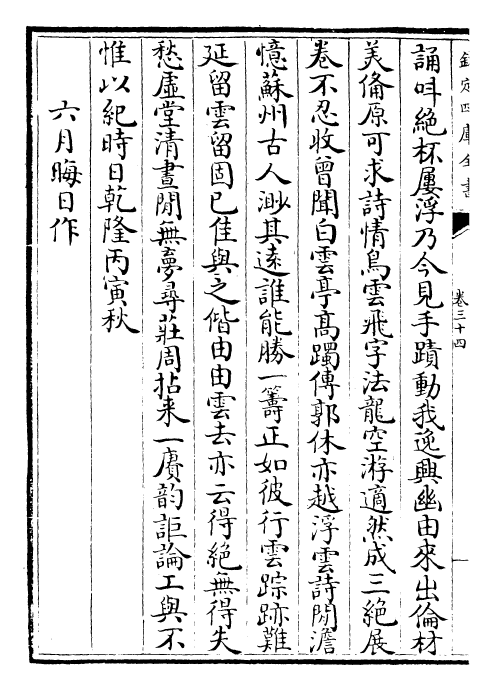 欽定四庫全書
卷三十四
誦呌絶杯屢浮乃今見手蹟動我逸興幽由來出倫材
美俻原可求詩情鳥雲飛字法龍空游適然成三絶展
卷不忍收曾聞白雲亭髙躅傳郭休亦越浮雲詩閒澹
憶蘇州古人渺其遠誰能勝一籌正如彼行雲踪跡難
延留雲留固已佳與之偕由由雲去亦云得絶無得失
愁虛堂清晝閒無夢尋莊周拈来一賡韵詎論工與不
惟以紀時日乾隆丙寅秋
六月晦日作